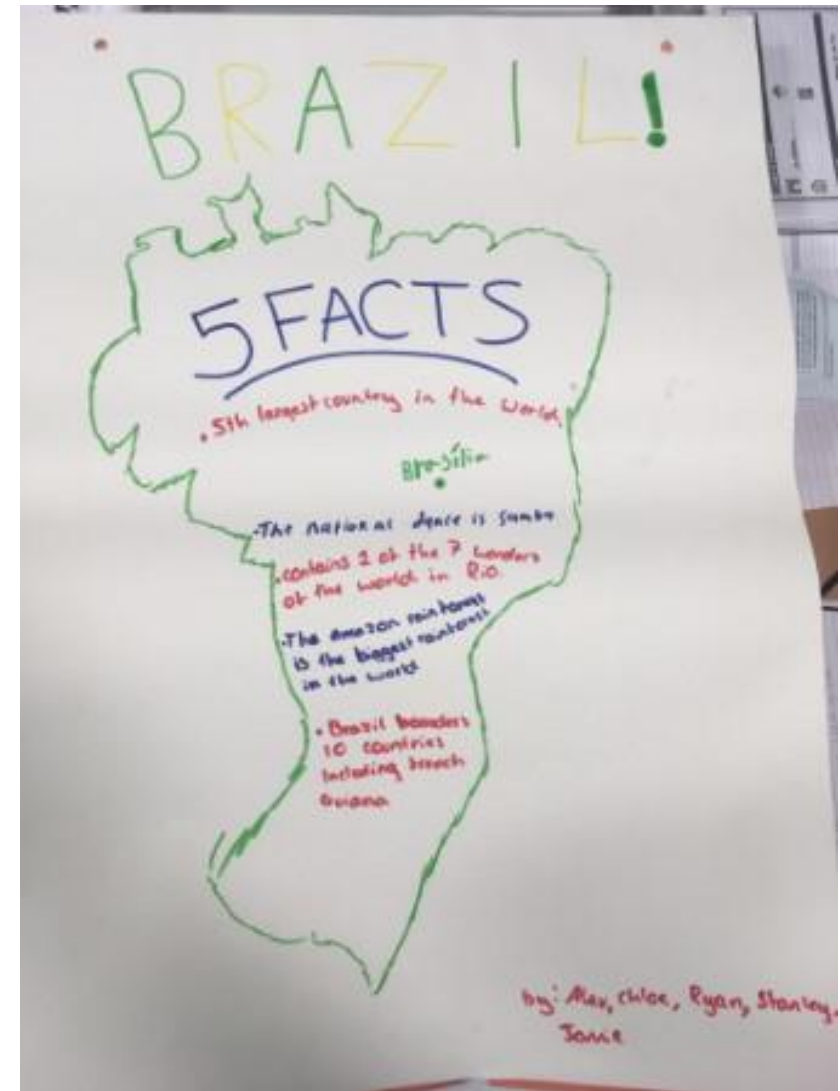 BRAZIL!
5 FACTS
• 5th largest country in the world
Brasília
• The national dance is samba
• contains 2 of the 7 wonders
of the world in Rio.
• The amazon rainforest
is the biggest rainforest
in the world
• Brazil boarders
10 countries
Including french
Guiana
by: Alex, Chloe, Ryan, Stanley,
Jamie